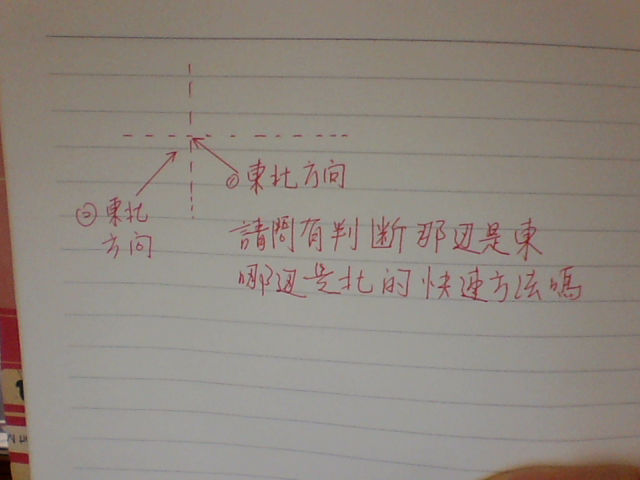 ①東北方向
②東北
方向
請問有判断那边是東
哪边是北的快速方法嗎